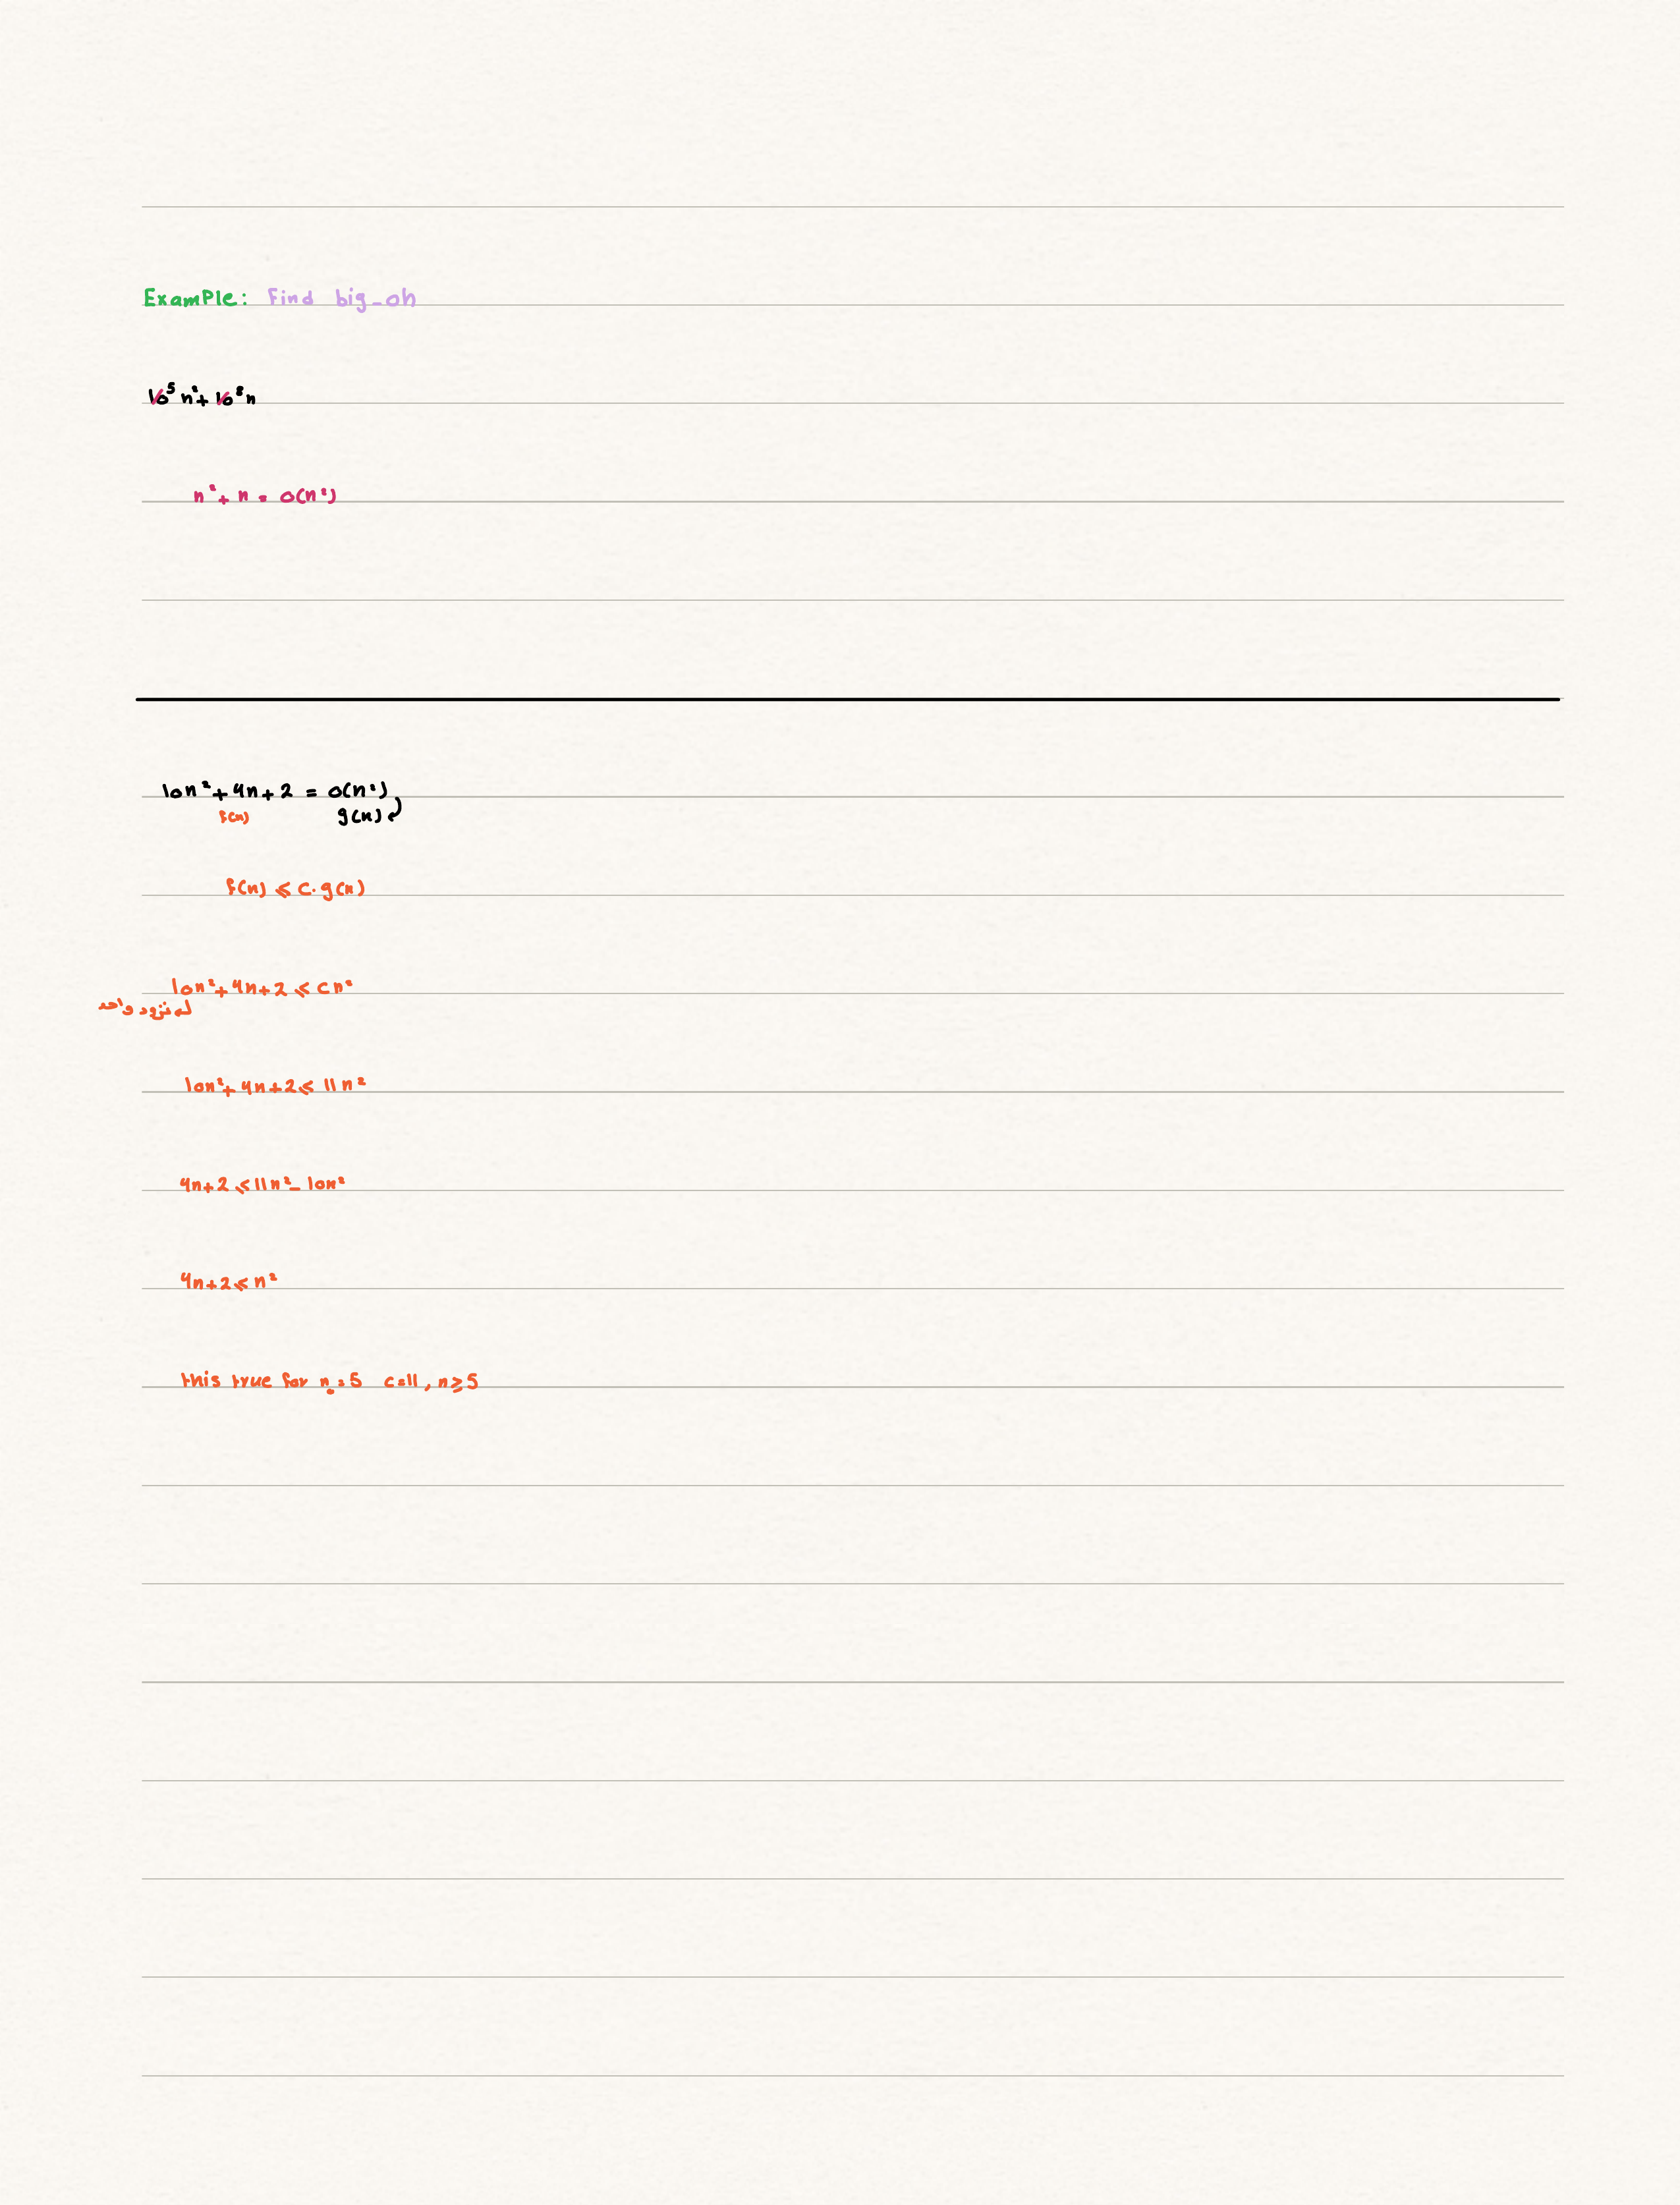 Example: Find big-oh
10⁵n²+10⁸n
n²+n = O(n²)
10n²+4n+2 = O(n²)
f(n) g(n)
f(n) ≤ c.g(n)
10n²+4n+2 ≤ cn²
له نزود واحد
10n²+4n+2 ≤ 11n²
4n+2 ≤ 11n²-10n²
4n+2 ≤ n²
this true for n₀=5 c=11, n≥5